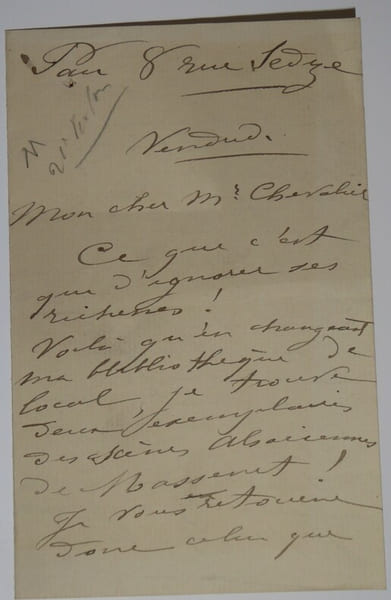 Pau 8 rue Sedze
Vendred.
Mon cher Mr Chevalier
Ce que c'est
que d'ignorer ses
richesses !
Voilà qu'en changeant
ma bibliothèque de
local je trouve
deux exemplaires
des scènes alsaciennes
de Massenet !
Je vous retourne
donc celui que